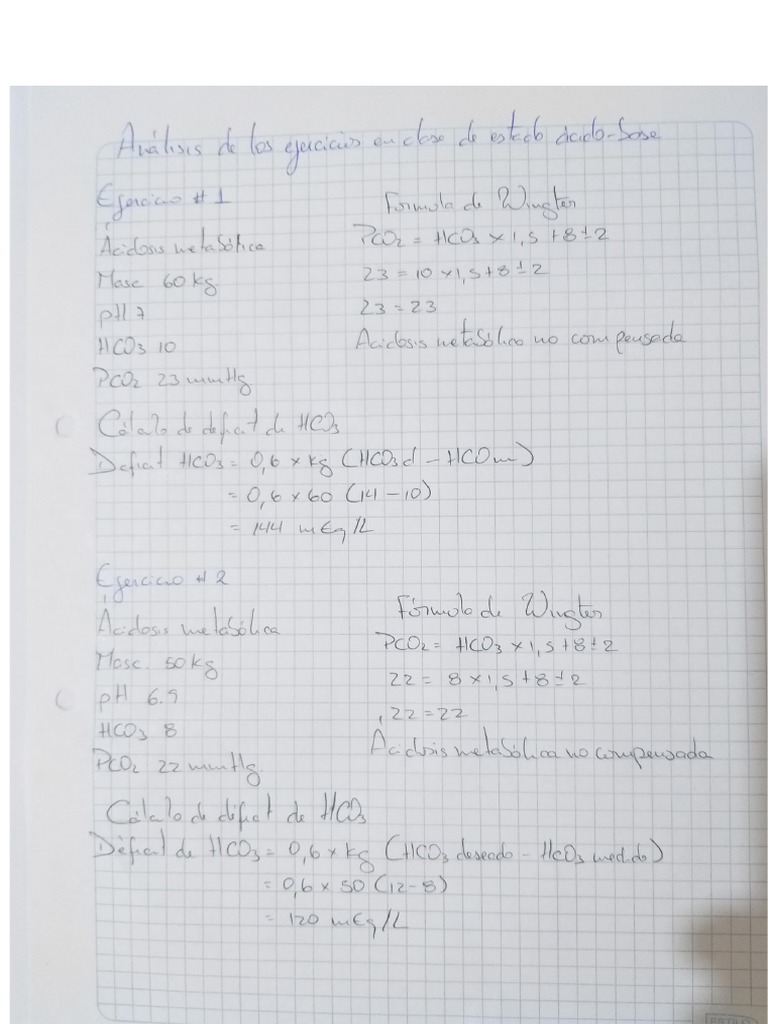 Análisis de los ejercicios en clase de estado ácido-base
Ejercicio # 1
Ácidosis metabólica
Masc 60 kg
pH 7
HCO3 10
PCO2 23 mmHg
Fórmula de Wingter
PCO2 = HCO3 x 1,5 + 8 ± 2
23 = 10 x 1,5 + 8 ± 2
23 = 23
Acidosis metabólica no compensada
Cálculo de déficit de HCO3
Déficit HCO3 = 0,6 x kg (HCO3d - HCOm)
= 0,6 x 60 (14 - 10)
= 144 mEq/L
Ejercicio # 2
Acidosis metabólica
Masc. 50 kg
pH 6.9
HCO3 8
PCO2 22 mmHg
Fórmula de Wingter
PCO2 = HCO3 x 1,5 + 8 ± 2
22 = 8 x 1,5 + 8 ± 2
22 = 22
Acidosis metabólica no compensada
Cálculo de déficit de HCO3
Déficit de HCO3 = 0,6 x kg (HCO3 deseado - HCO3 medido)
= 0,6 x 50 (12 - 8)
= 120 mEq/L